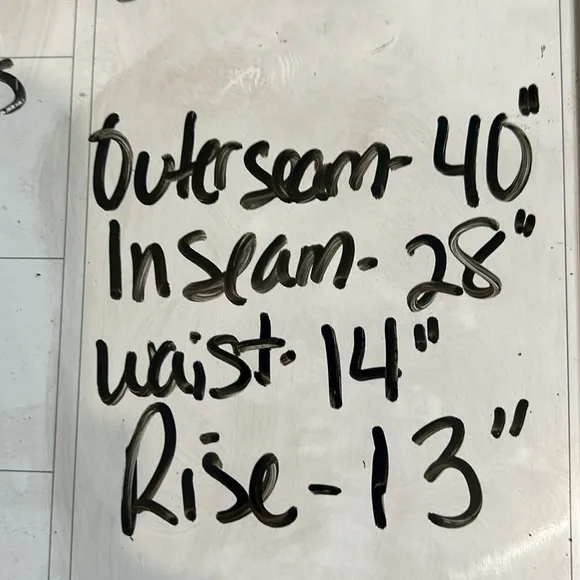 Outerseam- 40"
Inseam- 28"
waist- 14"
Rise-13"